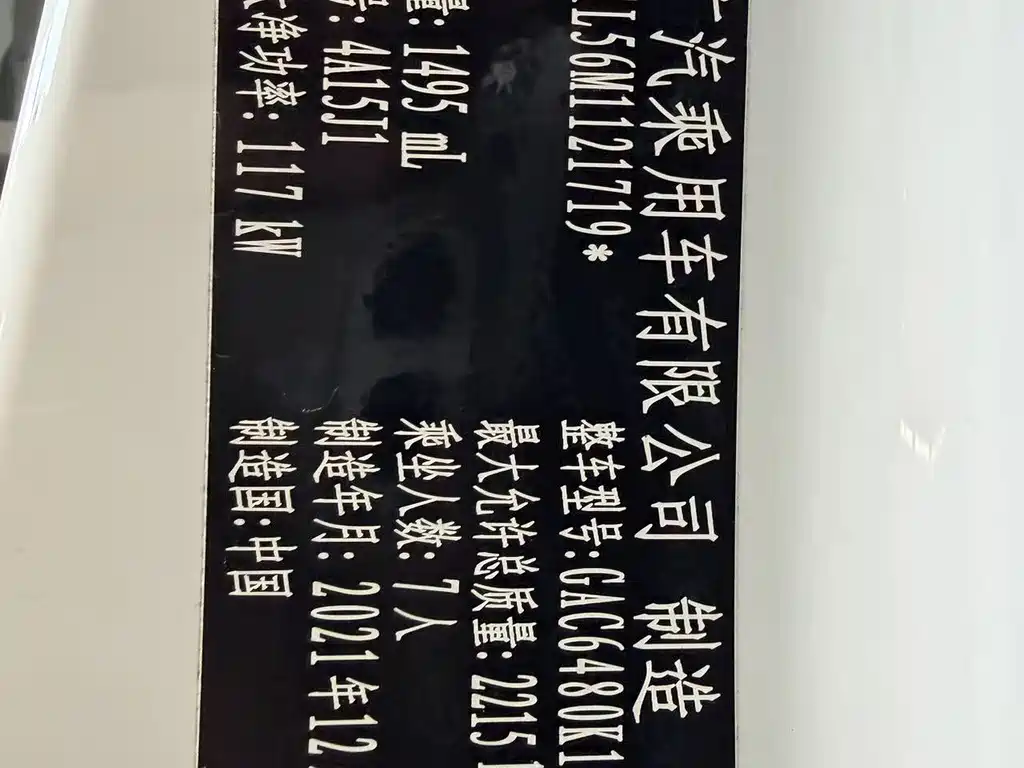 汽乘用车有限公司 制造
L56M1121719* 整车型号:GAC6480K1
最大允许总质量: 2215
量: 1495 mL 乘坐人数: 7人
号: 4A15J1 制造年月: 2021年12
大净功率: 117 kW 制造国: 中国